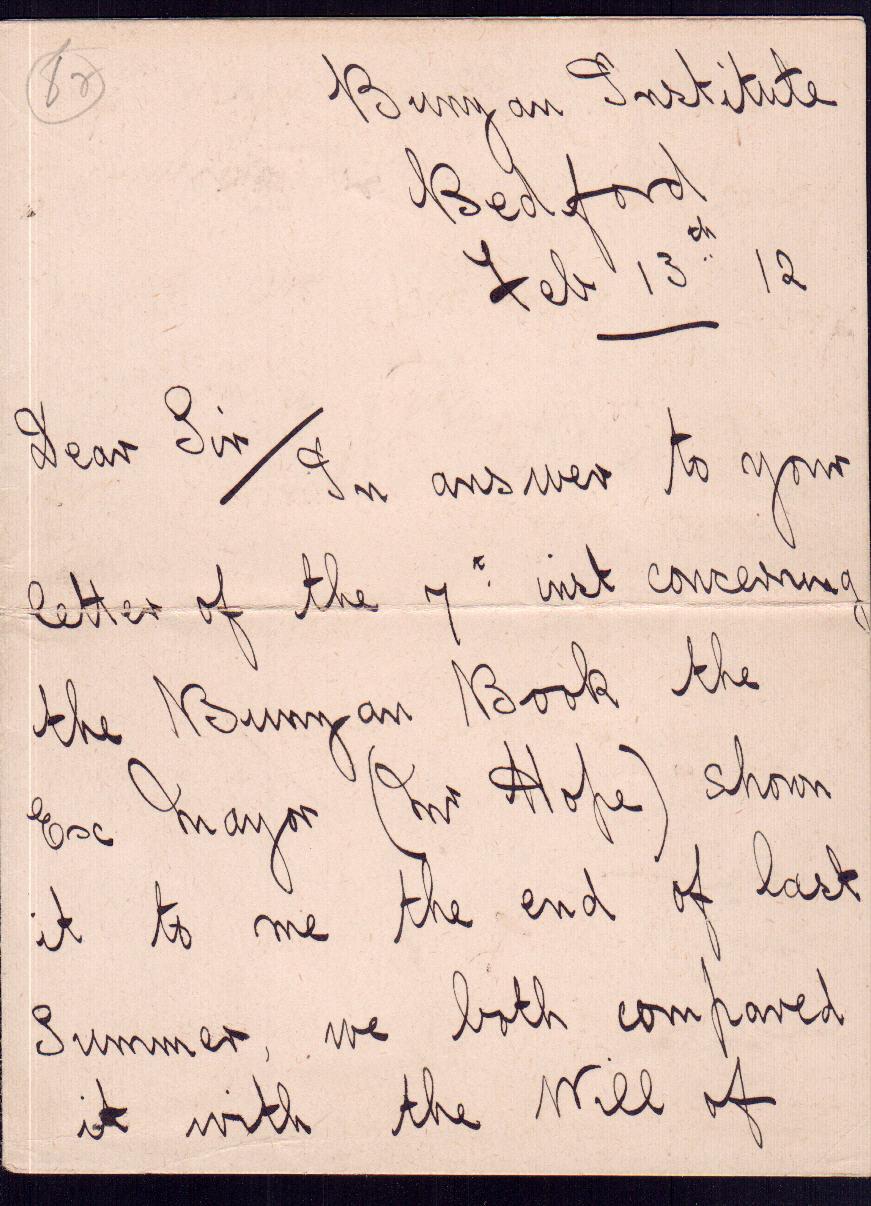 82
Bunyan Institute
Bedford
Feb 13th 12
Dear Sir / In answer to your
letter of the 7th inst concerning
the Bunyan Book the
Esc Mayor (Mr Hope) shown
it to me the end of last
Summer, we both compared
it with the Will of